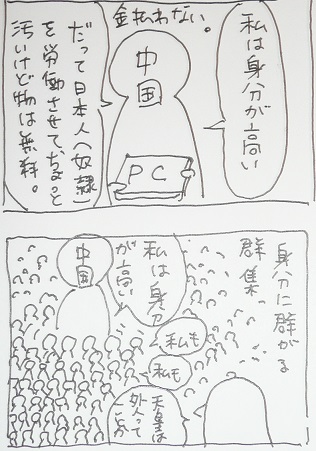 私は身分が高い
金払わない。
中国
PC
だって日本人(奴隷)
を労働させて、ちょっと
汚いけど物は無料。
身分に群がる
群集
私は身分
が高い
中国
私も
私も
天皇は
外って
ことか